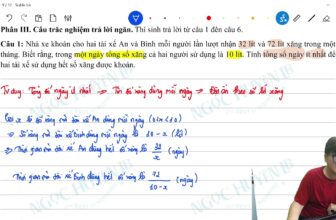 Phần III. Câu trắc nghiệm trả lời ngắn. Thí sinh trả lời từ câu 1 đến câu 6.
Câu 1: Nhà xe khoán cho hai tài xế An và Bình mỗi người lần lượt nhận 32 lít và 72 lít xăng trong một
tháng. Biết rằng, trong một ngày tổng số xăng cả hai người sử dụng là 10 lít. Tính tổng số ngày ít nhất để
hai tài xế sử dụng hết số xăng được khoán.
Tư duy: Tổng số ngày ít nhất → Tìm số xăng dùng mỗi ngày →
Gọi x là số xăng mà An dùng mỗi ngày (0<x<10)
⇒ Số xăng mà Bình dùng mỗi ngày là 10 - x (lít)
⇒ Thời gian mà tài xế An dùng hết số xăng là 32/x (ngày)
Thời gian mà tài xế Bình dùng hết số xăng là 72/10-x (ngày)
NGOC HUYEN LB